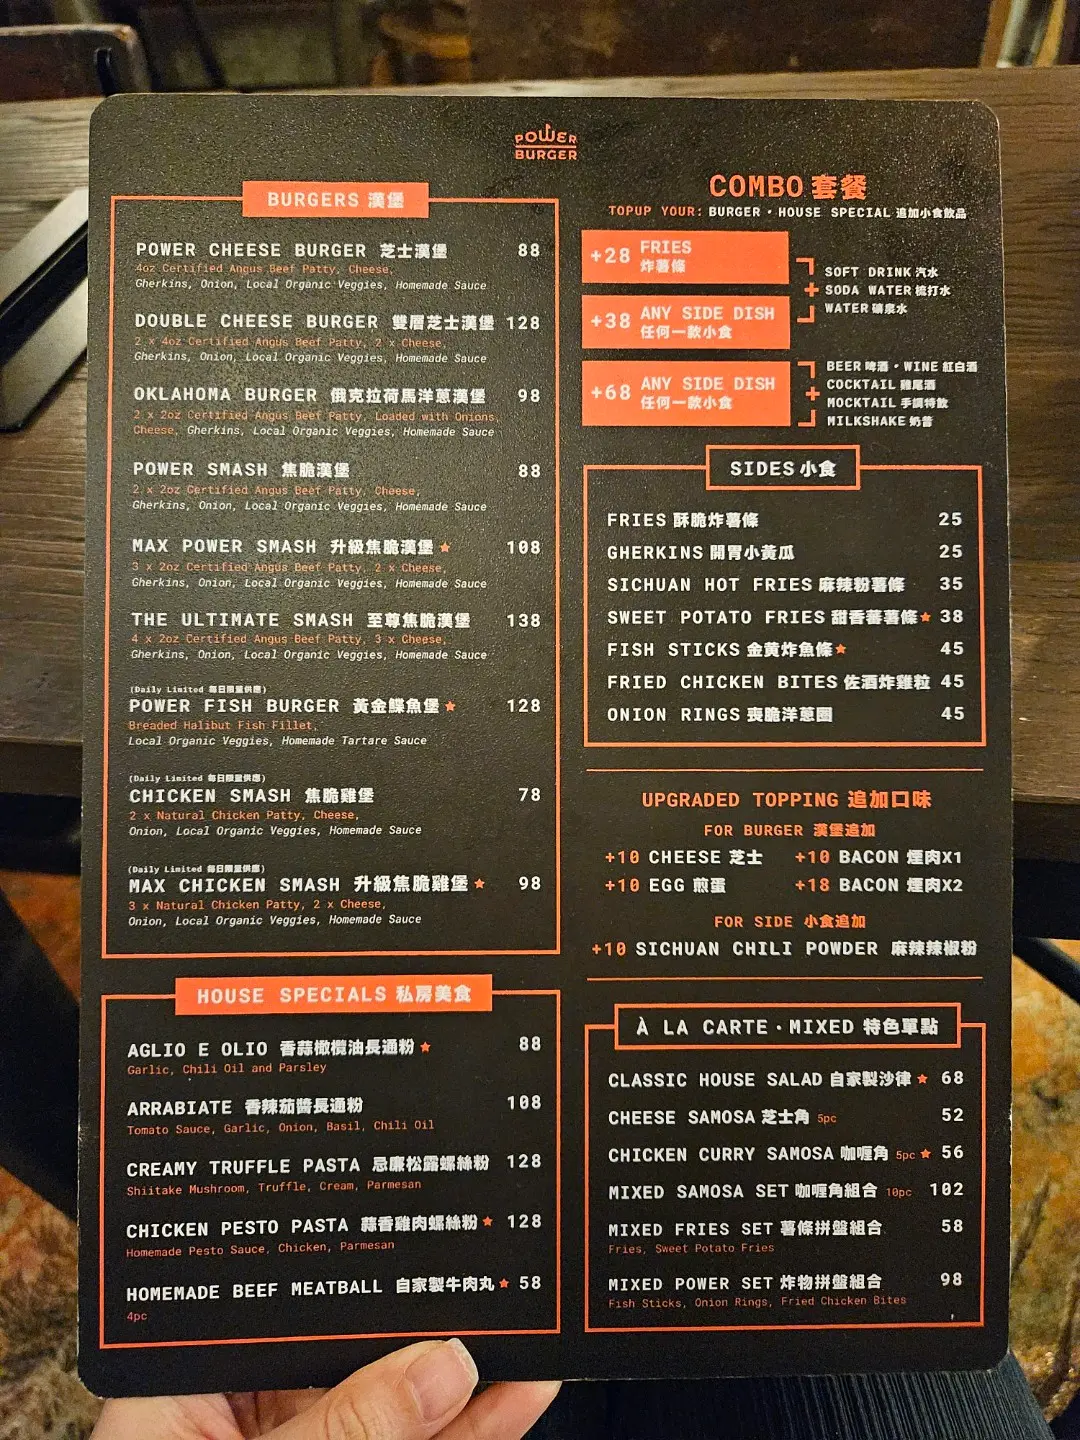 POWER
BURGER
BURGERS 漢堡
POWER CHEESE BURGER 芝士漢堡 88
4oz Certified Angus Beef Patty, Cheese,
Gherkins, Onion, Local Organic Veggies, Homemade Sauce
DOUBLE CHEESE BURGER 雙層芝士漢堡 128
2 x 4oz Certified Angus Beef Patty, 2 x Cheese,
Gherkins, Onion, Local Organic Veggies, Homemade Sauce
OKLAHOMA BURGER 俄克拉荷馬洋蔥漢堡 98
2 x 2oz Certified Angus Beef Patty, Loaded with Onions,
Cheese, Gherkins, Local Organic Veggies, Homemade Sauce
POWER SMASH 焦脆漢堡 88
2 x 2oz Certified Angus Beef Patty, Cheese,
Gherkins, Onion, Local Organic Veggies, Homemade Sauce
MAX POWER SMASH 升級焦脆漢堡 108
3 x 2oz Certified Angus Beef Patty, 2 x Cheese,
Gherkins, Onion, Local Organic Veggies, Homemade Sauce
THE ULTIMATE SMASH 至尊焦脆漢堡 138
4 x 2oz Certified Angus Beef Patty, 3 x Cheese,
Gherkins, Onion, Local Organic Veggies, Homemade Sauce
(Daily Limited 每日限量供應)
POWER FISH BURGER 黃金鰈魚堡 128
Breaded Halibut Fish Fillet,
Local Organic Veggies, Homemade Tartare Sauce
(Daily Limited 每日限量供應)
CHICKEN SMASH 焦脆雞堡 78
2 x Natural Chicken Patty, Cheese,
Onion, Local Organic Veggies, Homemade Sauce
(Daily Limited 每日限量供應)
MAX CHICKEN SMASH 升級焦脆雞堡 98
3 x Natural Chicken Patty, 2 x Cheese,
Onion, Local Organic Veggies, Homemade Sauce
HOUSE SPECIALS 私房美食
AGLIO E OLIO 香蒜橄欖油長通粉 88
Garlic, Chili Oil and Parsley
ARRABIATE 香辣茄醬長通粉 108
Tomato Sauce, Garlic, Onion, Basil, Chili Oil
CREAMY TRUFFLE PASTA 忌廉松露螺絲粉 128
Shiitake Mushroom, Truffle, Cream, Parmesan
CHICKEN PESTO PASTA 蒜香雞肉螺絲粉 128
Homemade Pesto Sauce, Chicken, Parmesan
HOMEMADE BEEF MEATBALL 自家製牛肉丸 58
4pc
COMBO 套餐
TOPUP YOUR: BURGER・HOUSE SPECIAL 追加小食飲品
+28 FRIES
炸薯條
+38 ANY SIDE DISH
任何一款小食
+
SOFT DRINK 汽水
SODA WATER 梳打水
WATER 礦泉水
+68 ANY SIDE DISH
任何一款小食
+
BEER 啤酒・WINE 紅白酒
COCKTAIL 雞尾酒
MOCKTAIL 手調特飲
MILKSHAKE 奶昔
SIDES 小食
FRIES 酥脆炸薯條 25
GHERKINS 開胃小黃瓜 25
SICHUAN HOT FRIES 麻辣粉薯條 35
SWEET POTATO FRIES 甜香蕃薯條 38
FISH STICKS 金黄炸魚條 45
FRIED CHICKEN BITES 佐酒炸雞粒 45
ONION RINGS 喪脆洋蔥圈 45
UPGRADED TOPPING 追加口味
FOR BURGER 漢堡追加
+10 CHEESE 芝士 +10 BACON 煙肉X1
+10 EGG 煎蛋 +18 BACON 煙肉X2
FOR SIDE 小食追加
+10 SICHUAN CHILI POWDER 麻辣辣椒粉
À LA CARTE・MIXED 特色單點
CLASSIC HOUSE SALAD 自家製沙律 68
CHEESE SAMOSA 芝士角 5pc 52
CHICKEN CURRY SAMOSA 咖喱角 5pc 56
MIXED SAMOSA SET 咖喱角組合 10pc 102
MIXED FRIES SET 薯條拼盤組合 58
Fries, Sweet Potato Fries
MIXED POWER SET 炸物拼盤組合 98
Fish Sticks, Onion Rings, Fried Chicken Bites